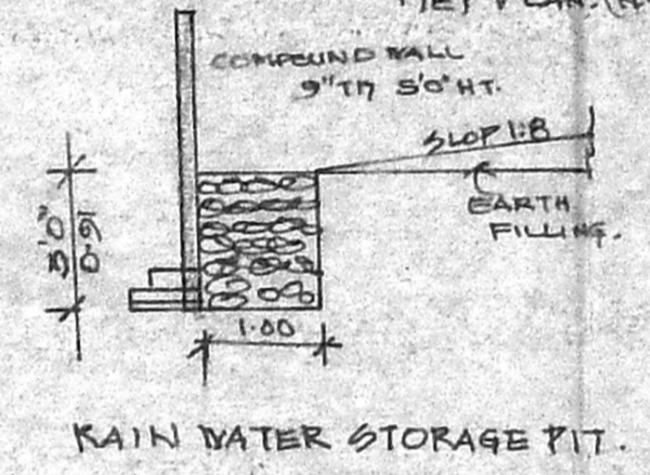 COMPOUND WALL
9"TH 5'0" HT.
SLOP 1:8
EARTH
FILLING.
3'0"
1.00
RAIN WATER STORAGE PIT.